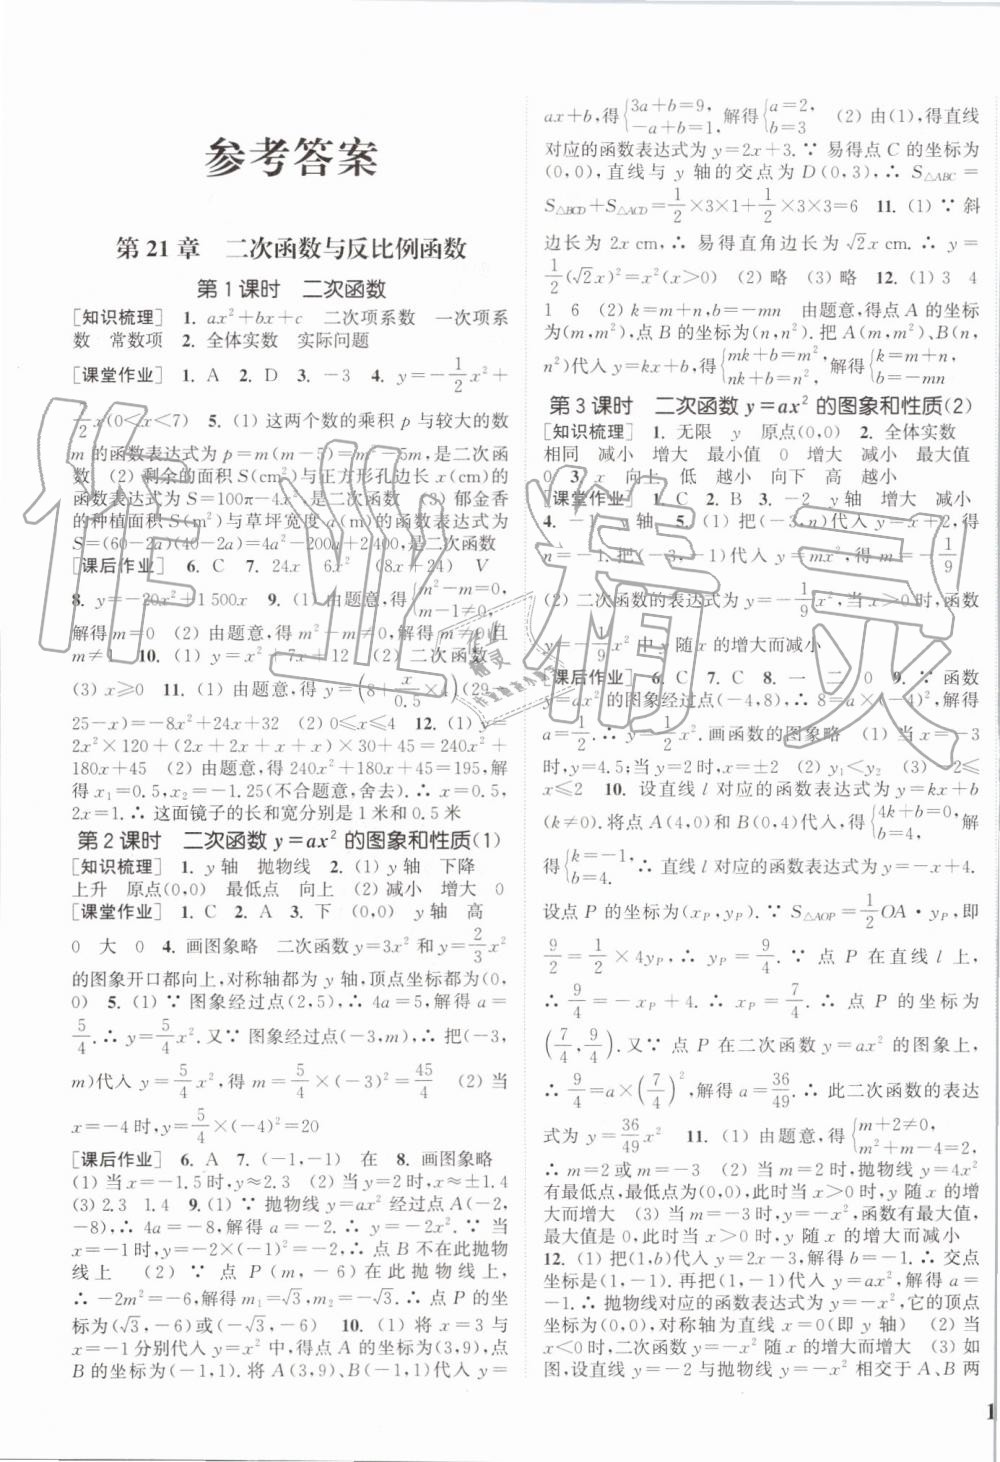 参考答案
第21章　二次函数与反比例函数
第1课时　二次函数
[知识梳理]　1. ax²+bx+c　二次项系数　一次项系
数　常数项　2. 全体实数　实际问题
[课堂作业]　1. A　2. D　3. －3　4. y=－1/2x²+
7/2x(0<x<7)　5. (1) 这两个数的乘积 p 与较大的数
m 的函数表达式为 p=m(m－5)=m²－5m,是二次函
数　(2) 剩余的面积 S(cm²)与正方形孔边长 x(cm)的
函数表达式为 S=100π－4x²,是二次函数　(S) 郁金香
的种植面积 S(m²)与草坪宽度 a(m)的函数表达式为
S=(60－2a)(40－2a)=4a²－200a+2 400,是二次函数
[课后作业]　6. C　7. 24x　6x²　(8x+24)　V
8. y=－20x²+1 500x　9. (1) 由题意,得{m²－m=0, m－1≠0,
解得 m=0　(2) 由题意,得 m²－m≠0,解得 m≠0 且
m≠1　10. (1) y=x²+7x+12　(2) 二次函数
(3) x≥0　11. (1) 由题意,得 y=(8+x/0.5×4)(29
25－x)=－8x²+24x+32　(2) 0≤x≤4　12. (1) y=
2x²×120+(2x+2x+x+x)×30+45=240x²+
180x+45　(2) 由题意,得 240x²+180x+45=195,解
得 x₁=0.5,x₂=－1.25(不合题意,舍去).∴ x=0.5,
2x=1.∴ 这面镜子的长和宽分别是 1 米和 0.5 米
第2课时　二次函数 y=ax² 的图象和性质(1)
[知识梳理]　1. y 轴　抛物线　2. (1) y 轴　下降
上升　原点(0,0)　最低点　向上　(2) 减小　增大　0
[课堂作业]　1. C　2. A　3. 下　(0,0)　y 轴　高
0　大　0　4. 画图象略　二次函数 y=3x² 和 y=2/3x²
的图象开口都向上,对称轴都为 y 轴,顶点坐标都为(0,
0)　5. (1) ∵ 图象经过点(2,5),∴ 4a=5,解得 a=
5/4.∴ y=5/4x².又∵ 图象经过点(－3,m),∴ 把(－3,
m)代入 y=5/4x²,得 m=5/4×(－3)²=45/4　(2) 当
x=－4 时,y=5/4×(－4)²=20
[课后作业]　6. A　7. (－1,－1)　在　8. 画图象略
(1) 当 x=－1.5 时,y≈2.3　(2) 当 y=2 时,x≈±1.4
(3) 2.3　1.4　9. (1) ∵ 抛物线 y=ax² 经过点 A(－2,
－8),∴ 4a=－8,解得 a=－2.∴ y=－2x².∵ 当
x=－1 时,y=－2×(－1)²=－2,∴ 点 B 不在此抛物
线上　(2) ∵ 点 P(m,－6)在此抛物线上,
∴ －2m²=－6,解得 m₁=√3,m₂=－√3.∴ 点 P 的坐
标为(√3,－6)或(－√3,－6)　10. (1) 将 x=3 与
x=－1 分别代入 y=x²,得点 A 的坐标为(3,9),点
B 的坐标为(－1,1).将 A(3,9)、B(－1,1)代入 y=
ax+b,得{3a+b=9, －a+b=1,解得{a=2, b=3　(2) 由(1),得直线
对应的函数表达式为 y=2x+3.∵ 易得点 C 的坐标为
(0,0),直线与 y 轴的交点为 D(0,3),∴ S△ABC=
S△BCD+S△ACD=1/2×3×1+1/2×3×3=6　11. (1) ∵ 斜
边长为 2x cm,∴ 易得直角边长为 √2x cm.∴ y=
1/2(√2x)²=x²(x>0)　(2) 略　(3) 略　12. (1) 3　4
1　6　(2) k=m+n,b=－mn　由题意,得点 A 的坐标
为(m,m²),点 B 的坐标为(n,n²).把 A(m,m²)、B(n,
n²)代入 y=kx+b,得{mk+b=m², nk+b=n²,解得{k=m+n, b=－mn
第3课时　二次函数 y=ax² 的图象和性质(2)
[知识梳理]　1. 无限　y　原点(0,0)　2. 全体实数
相同　减小　增大　最小值　0　增大　减小　最大值
0　3. x　向上　低　向下　高　越小
[课堂作业]　1. C　2. B　3. －2　y 轴　增大　减小
4. －1　y 轴　5. (1) 把(－3,n)代入 y=x+2,得
n=－1.把(－3,－1)代入 y=mx²,得 m=－1/9
(2) 二次函数的表达式为 y=－1/9x²,当 x>0 时,函数
y=－1/9x² 中 y 随 x 的增大而减小
[课后作业]　6. C　7. C　8. 一　二　0　9. ∵ 函数
y=ax² 的图象经过点(－4,8),∴ 8=a×(－4)²,解得
a=1/2.∴ y=1/2x².画函数的图象略　(1) 当 x=－3
时,y=4.5;当 y=2 时,x=±2　(2) y₁<y₂　(3) －2≤
x≤2　10. 设直线 l 对应的函数表达式为 y=kx+b
(k≠0).将点 A(4,0)和 B(0,4)代入,得{4k+b=0, b=4,解
得{k=－1, b=4.∴ 直线 l 对应的函数表达式为 y=－x+4.
设点 P 的坐标为(xP,yP).∵ S△AOP=1/2OA·yP,即
9/2=1/2×4yP,∴ yP=9/4.∵ 点 P 在直线 l 上,
∴ 9/4=－xP+4.∴ xP=7/4.∴ 点 P 的坐标为
(7/4,9/4).又∵ 点 P 在二次函数 y=ax² 的图象上,
∴ 9/4=a×(7/4)²,解得 a=36/49.∴ 此二次函数的表达
式为 y=36/49x²　11. (1) 由题意,得{m+2≠0, m²+m－4=2,
∴ m=2 或 m=－3　(2) 当 m=2 时,抛物线 y=4x²
有最低点,最低点为(0,0),此时当 x>0 时,y 随 x 的增
大而增大　(3) 当 m=－3 时,y=－x²,函数有最大值,
最大值是 0,此时当 x>0 时,y 随 x 的增大而减小
12. (1) 把(1,b)代入 y=2x－3,解得 b=－1.∴ 交点
坐标是(1,－1).再把(1,－1)代入 y=ax²,解得 a=
－1.∴ 抛物线对应的函数表达式为 y=－x²,它的顶点
坐标为(0,0),对称轴为直线 x=0(即 y 轴)　(2) 当
x<0 时,二次函数 y=－x² 的 y 随 x 的增大而增大　(3) 如
图,设直线 y=－2 与抛物线 y=－x² 相交于 A、B 两
1
作业精灵